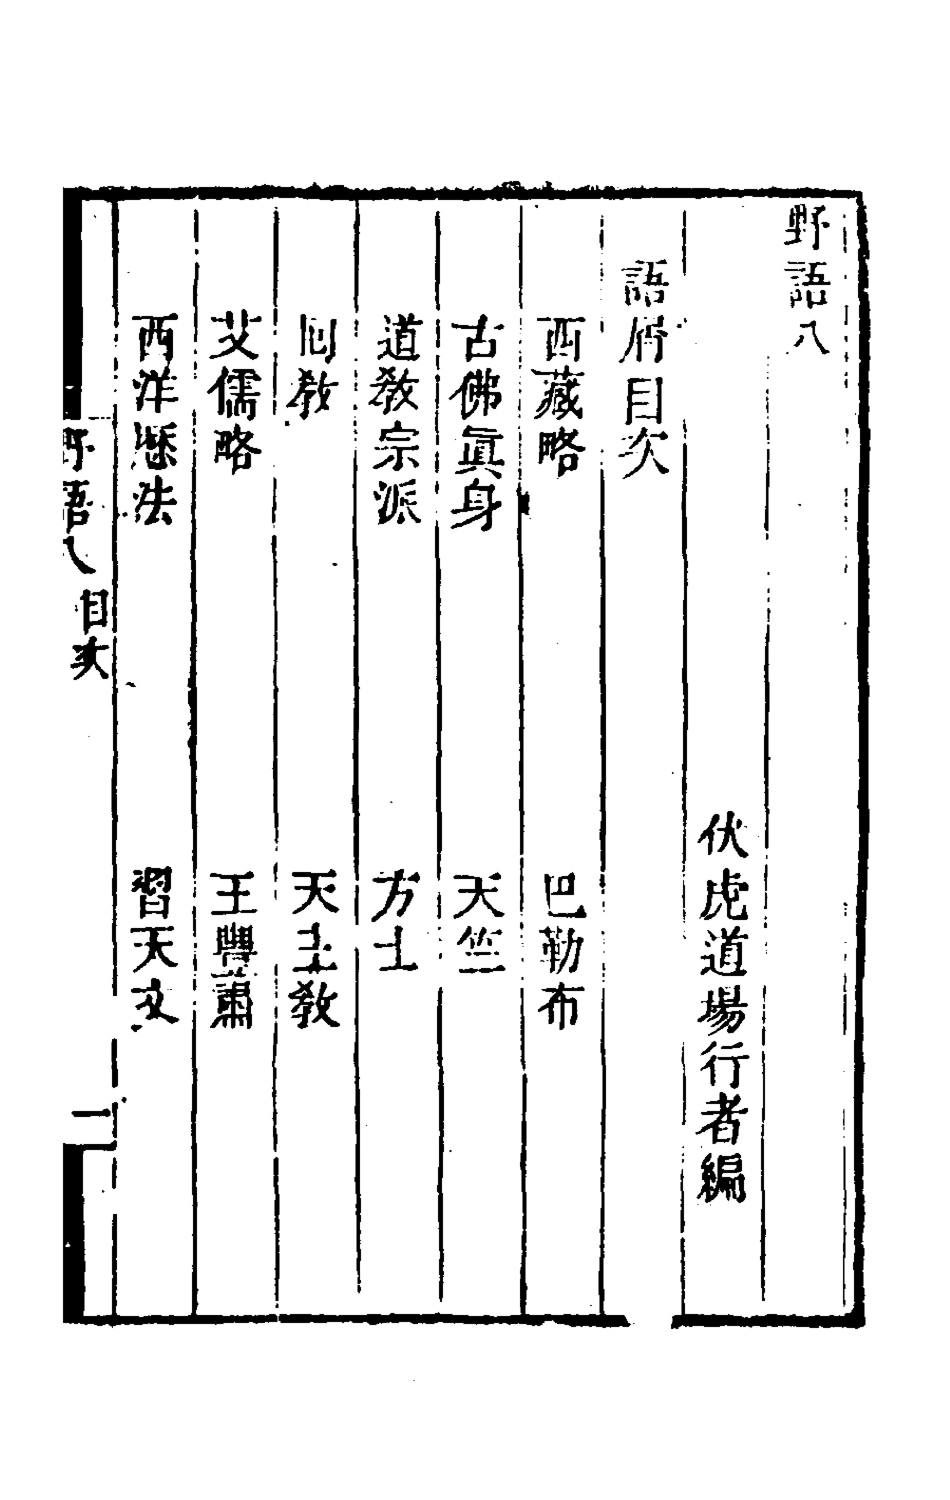 野語八
伏虎道場行者編
語屑目次
西藏略　巴勒布
古佛眞身　天竺
道教宗派　方士
回教　天主教
艾儒略　王豐肅
西洋歷法　習天文
野語八　目次　一